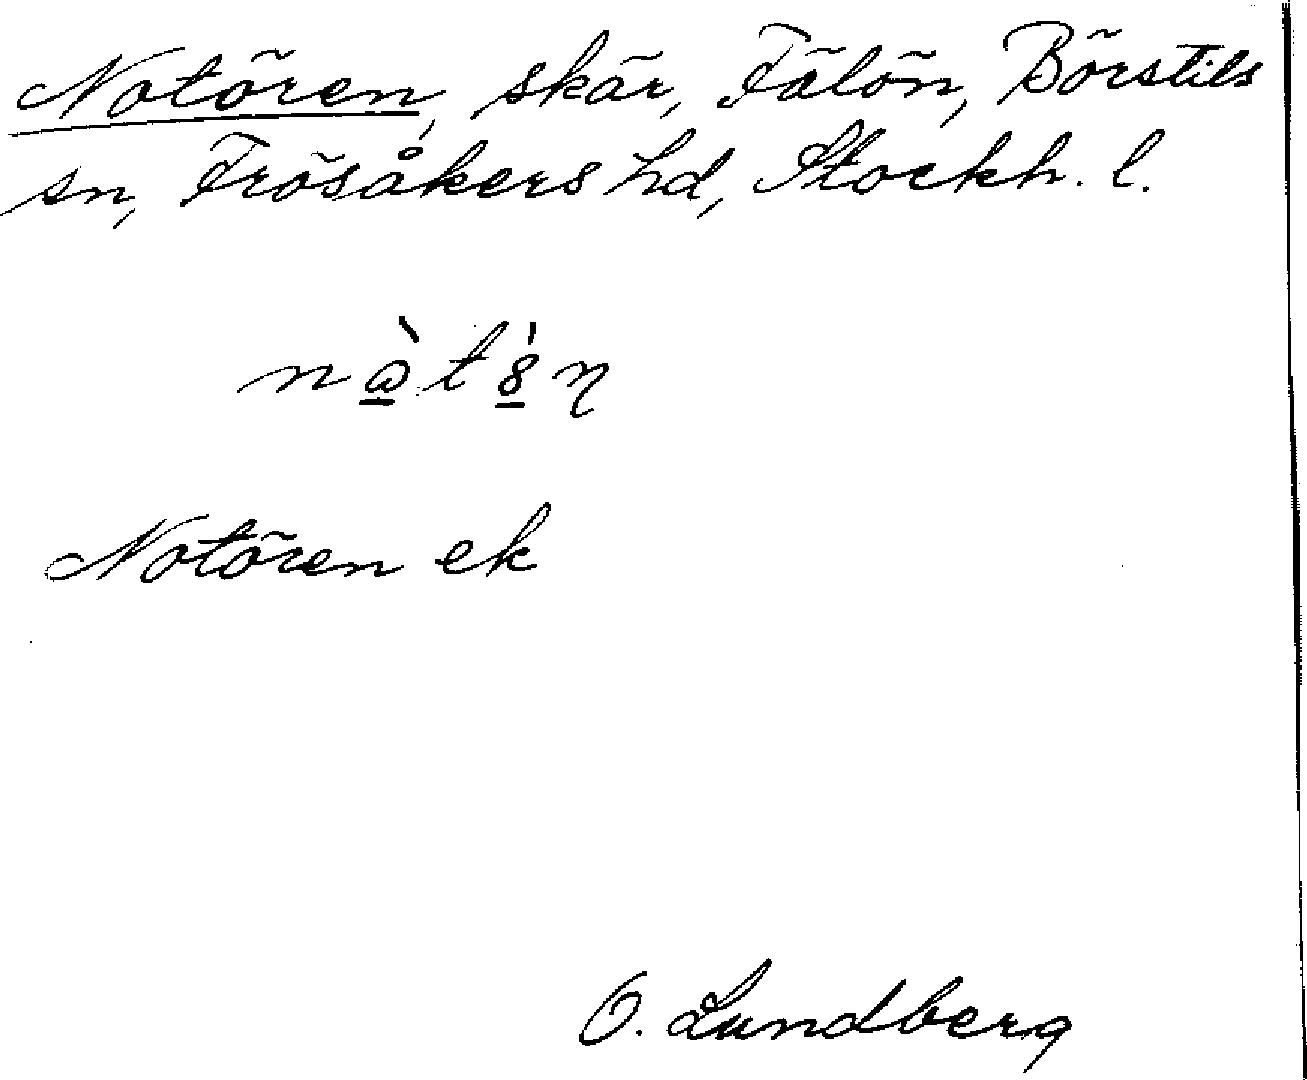 Notören, skär, Fälön, Börstils
sn, Frösåkers hd, Stockh. l.
Notören ek
O. Lundberg